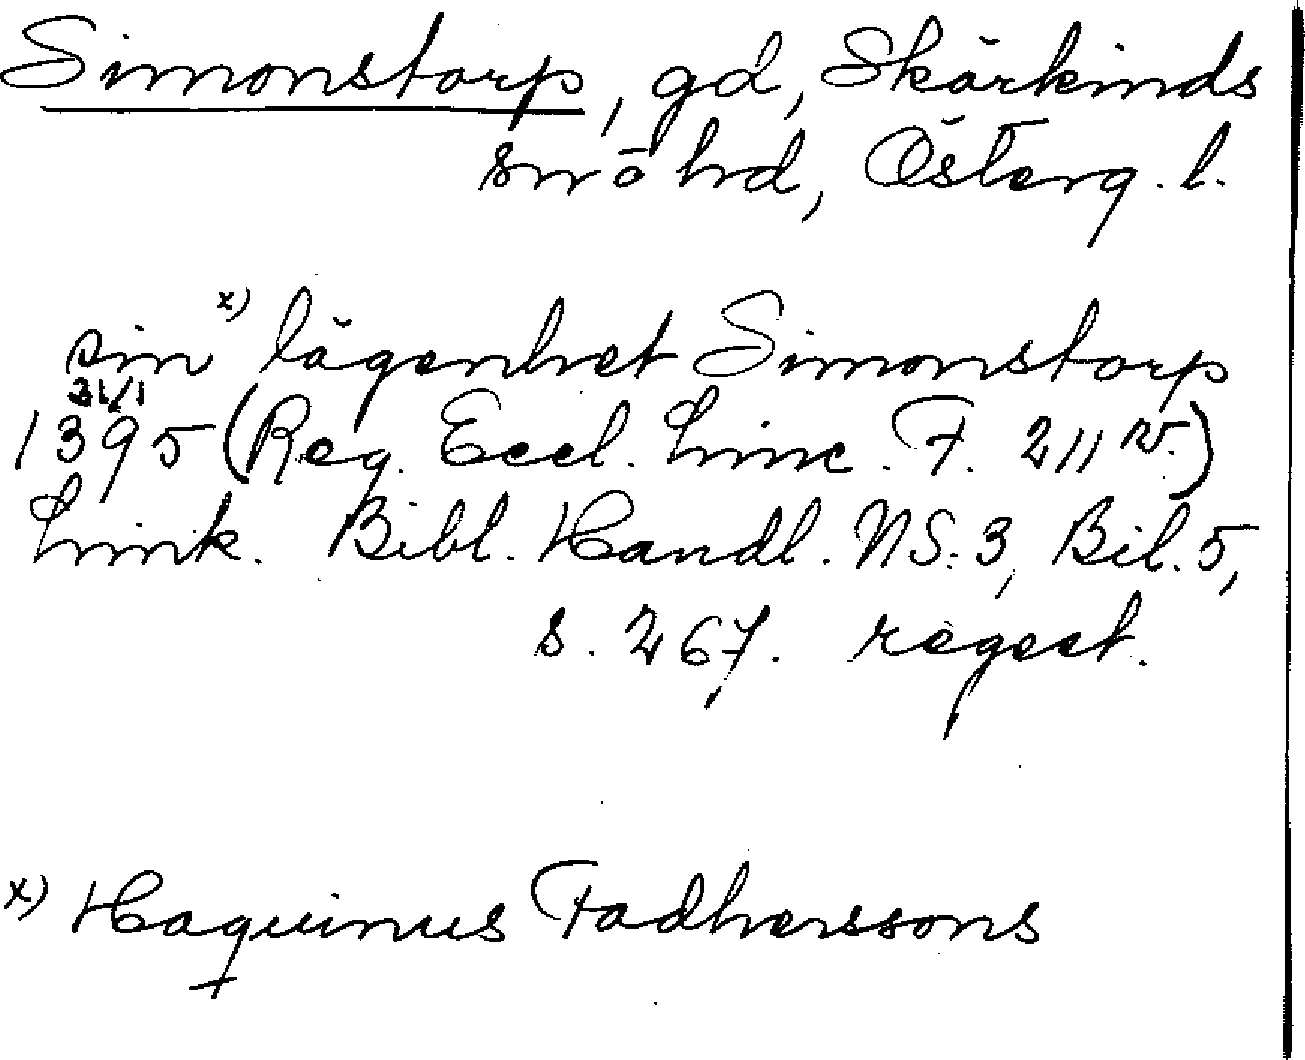 Simonstorp, gd, Skärkinds
sn o hd, Österg. l.
sin x) lägenhet Simonstorp
31/1
1395 (Reg. Eccl. Linc. F. 211 v.)
Link. Bibl. Handl. NS. 3, Bil. 5,
s. 267. regest.
x) Haquinus Fadherssons